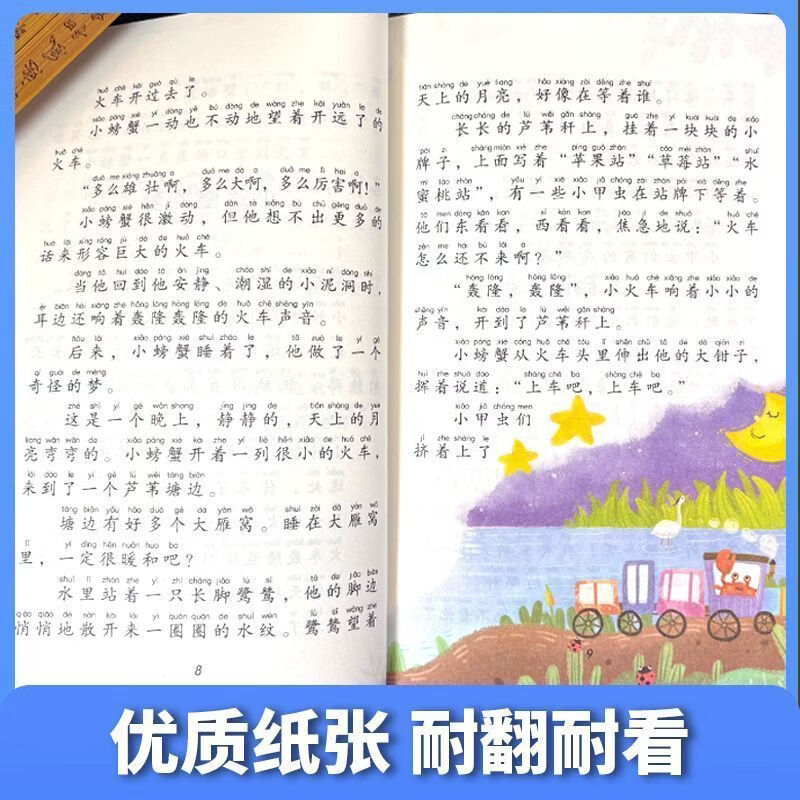 huǒ chē kāi guò qù le
火车开过去了。
xiǎo páng xiè yí dòng yě bú dòng de wàng zhe kāi yuǎn le de
小螃蟹一动也不动地望着开远了的
huǒ chē
火车。
duō me xióng zhuàng a duō me dà a duō me lì hai a
“多么雄壮啊，多么大啊，多么厉害啊！”
xiǎo páng xiè hěn jī dòng dàn tā xiǎng bù chū gèng duō de
小螃蟹很激动，但他想不出更多的
huà lái xíng róng jù dà de huǒ chē
话来形容巨大的火车。
dāng tā huí dào tā ān jìng cháo shī de xiǎo ní dòng shí
当他回到他安静、潮湿的小泥洞时，
ěr biān hái xiǎng zhe hōng lōng hōng lōng de huǒ chē shēng yīn
耳边还响着轰隆轰隆的火车声音。
hòu lái xiǎo páng xiè shuì zháo le tā zuò le yí gè
后来，小螃蟹睡着了，他做了一个
qí guài de mèng
奇怪的梦。
zhè shì yí gè wǎn shang jìng jìng de tiān shàng de yuè
这是一个晚上，静静的，天上的月
liang wān wān de xiǎo páng xiè kāi zhe yí liè hěn xiǎo de huǒ chē
亮弯弯的。小螃蟹开着一列很小的火车，
lái dào le yí gè lú wěi táng biān
来到了一个芦苇塘边。
táng biān yǒu hǎo duō gè dà yàn wō shuì zài dà yàn wō
塘边有好多个大雁窝。睡在大雁窝
lǐ yí dìng hěn nuǎn huo ba
里，一定很暖和吧？
shuǐ lǐ zhàn zhe yì zhī cháng jiǎo lù sī tā de jiǎo biān
水里站着一只长脚鹭鸶，他的脚边
qiāo qiāo de sàn kāi lái yì quān quān de shuǐ wén lù sī wàng zhe
悄悄地散开来一圈圈的水纹。鹭鸶望着
8
tiān shàng de yuè liang hǎo xiàng zài děng zhe shuí
天上的月亮，好像在等着谁。
cháng cháng de lú wěi gǎn shàng guà zhe yí kuài kuài de xiǎo
长长的芦苇秆上，挂着一块块的小
pái zi shàng miàn xiě zhe píng guǒ zhàn cǎo méi zhàn shuǐ
牌子，上面写着“苹果站”“草莓站”“水
mì táo zhàn yǒu yì xiē xiǎo jiǎ chóng zài zhàn pái xià děng zhe
蜜桃站”，有一些小甲虫在站牌下等着。
tā men dōng kàn kan xī kàn kan jiāo jí de shuō huǒ chē
他们东看看，西看看，焦急地说：“火车
zěn me hái bù lái a
怎么还不来啊？”
hōng lōng hōng lōng xiǎo huǒ chē xiǎng zhe xiǎo xiǎo de
“轰隆，轰隆”，小火车响着小小的
shēng yīn kāi dào le lú wěi gǎn shàng
声音，开到了芦苇秆上。
xiǎo páng xiè cóng huǒ chē tóu lǐ shēn chū tā de dà qián zi
小螃蟹从火车头里伸出他的大钳子，
huī zhe shuō dào shàng chē ba shàng chē ba
挥着说道：“上车吧，上车吧。”
xiǎo jiǎ chóng men
小甲虫们
jǐ zhe shàng le
挤着上了
9
优质纸张 耐翻耐看